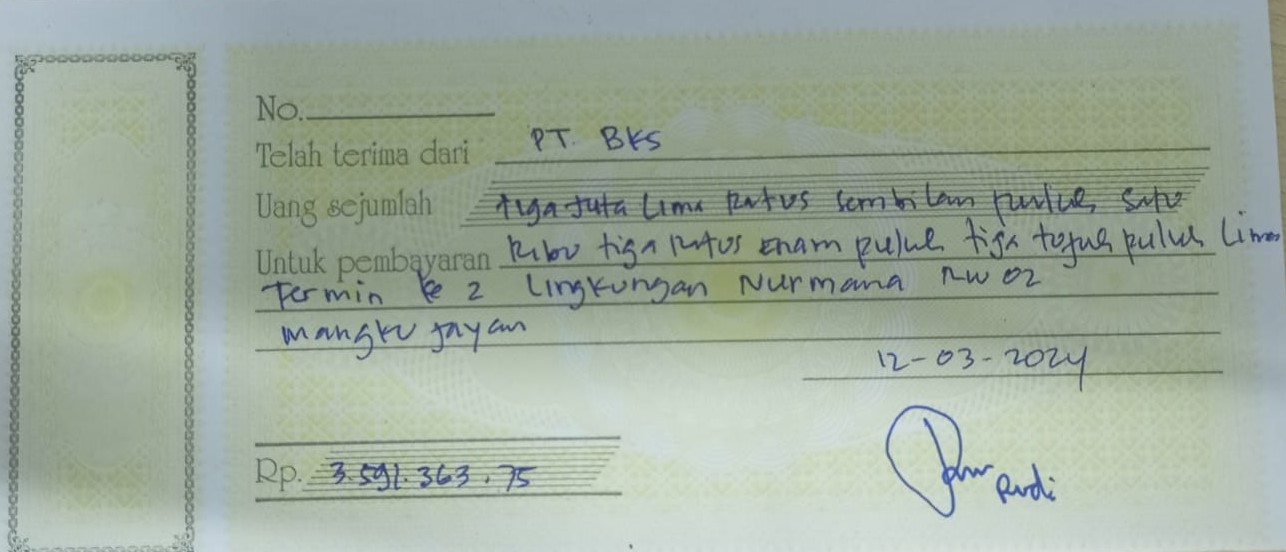 No.
Telah terima dari PT. BKS
Uang sejumlah tiga Juta Lima Ratus sembilan puluh satu
Untuk pembayaran Ribu tiga Ratus Enam puluh tiga tujuh puluh Lima
Termin ke 2 Lingkungan Nurmana RW 02
mangku jayan
12-03-2024
Rp. 3.591.363,75
Rudi